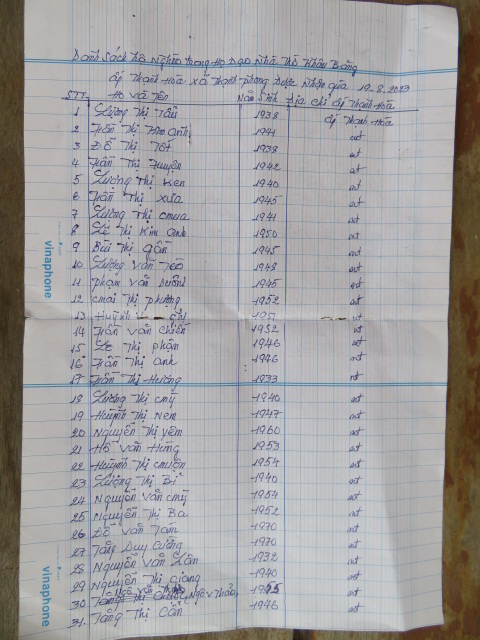 Danh Sách hộ Nghèo trong Họ Đạo Nhà Thờ Khâu Băng
ấp Thạnh Hòa xã Thạnh phong Được Nhận quà 19-8-2023
STT Họ và Tên Năm Sinh Địa chỉ ấp Thạnh Hòa
1 Lương Thị 1938 ấp Thạnh Hòa
2 Trần Thị Kim Anh 1991 nt
3 Đỗ Thị Tốt 1938 nt
4 Trần Thị 1942 nt
5 Lương Thị Kén 1940 nt
6 Trần Thị Xưa 1945 nt
7 Lương Thị Mua 1941 nt
8 Lê Thị Kim Anh 1950 nt
9 Bùi Thị Gần 1945 nt
10 Lương Văn 1948 nt
11 Phạm Văn 1945 nt
12 Mai Thị Phương 1952 nt
13 Huỳnh 1951 nt
14 Trần Văn Chiến 1952 nt
15 Lê Thị Phận 1946 nt
16 Trần Thị Anh 1946 nt
17 Trần Thị Hường 1933 nt
18 Lương Thị Mỹ 1940 nt
19 Huỳnh Thị Nem 1947 nt
20 Nguyễn Thị Yêm 1960 nt
21 Hồ Văn Hùng 1953 nt
22 Huỳnh Thị Muôn 1954 nt
23 Lương Thị Bị 1940 nt
24 Nguyễn Văn Mỹ 1954 nt
25 Nguyễn Thị Ba 1952 nt
26 Đỗ Văn Tám 1970 nt
27 Tăng Duy Cường 1970 nt
28 Nguyễn Văn Lân 1932 nt
29 Nguyễn Thị Giang 1940 nt
30 Ngô Văn Thảo nt
31. Tăng Thị Cẩn 1946 nt
vinaphone
vinaphone